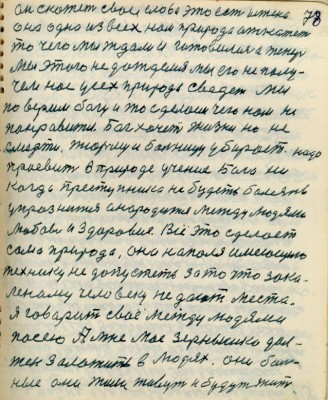 он скажет своё слова это есть истена
78
оно одно из всех нам природа откажет
то чего мы ждали и готовился а теперь
мы этого не дождемся мы его не полу-
чем нас усех природа сведет мы
поверим богу и это сделает чего нам не
понравится. Бог хочет жизни но не
смерти. Тюрьму и больницу убирает. надо
проявит в природе учение Бога ни
когда преступника не будеть болезнь
упразнится а народится между людями
Любовь и Здоровия. Всё это сделает
сама природа, она на поля имеющию
технику не допустеть за то что зака-
леному человеку не дают места.
Я говорит своё между людями
посею А мне мое Зернышко дол-
жен заложить в людях. они бол-
ные они жили живут и будут жить